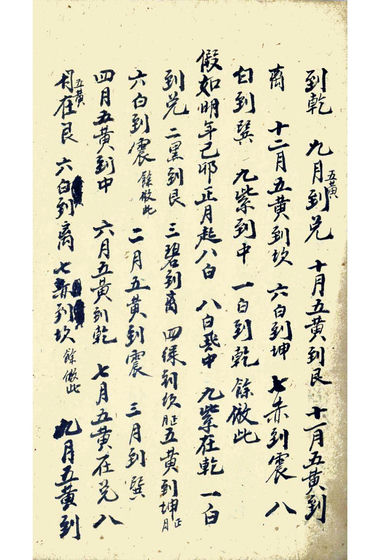 到乾 九月五黃到兌 十月五黃到艮 十一月五黃到
离 十二月五黃到坎 六白到坤 七赤到震 八
白到巽 九紫到中 一白到乾 餘倣此
假如明年己卯正月起八白 八白中 九紫在乾 一白
到兌 二黑到艮 三碧到离 四綠到坎 五黃到坤
六白到震 餘倣此 二月五黃到震 三月到巽
四月五黃到中 六月五黃到乾 七月五黃在兌 八
月五黃在艮 六白到离 七赤到坎 餘倣此 九月五黃到